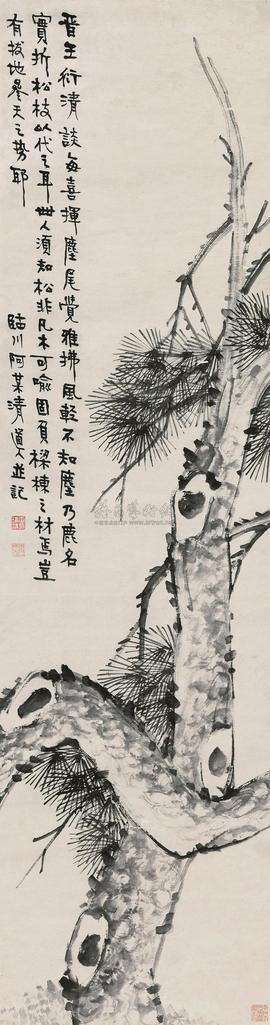 晋王衍清談每喜揮麈尾覺雅拂風輕不知麈乃鹿名
實折松枝以代之耳世人須知松非凡木可喻固負樑棟之材焉豈
有拔地參天之勢耶
臨川阿某清道人並記